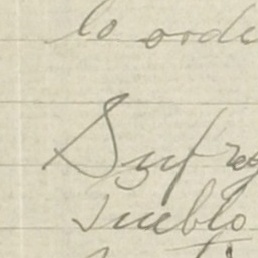 lo orde
Sufrag
pueblo